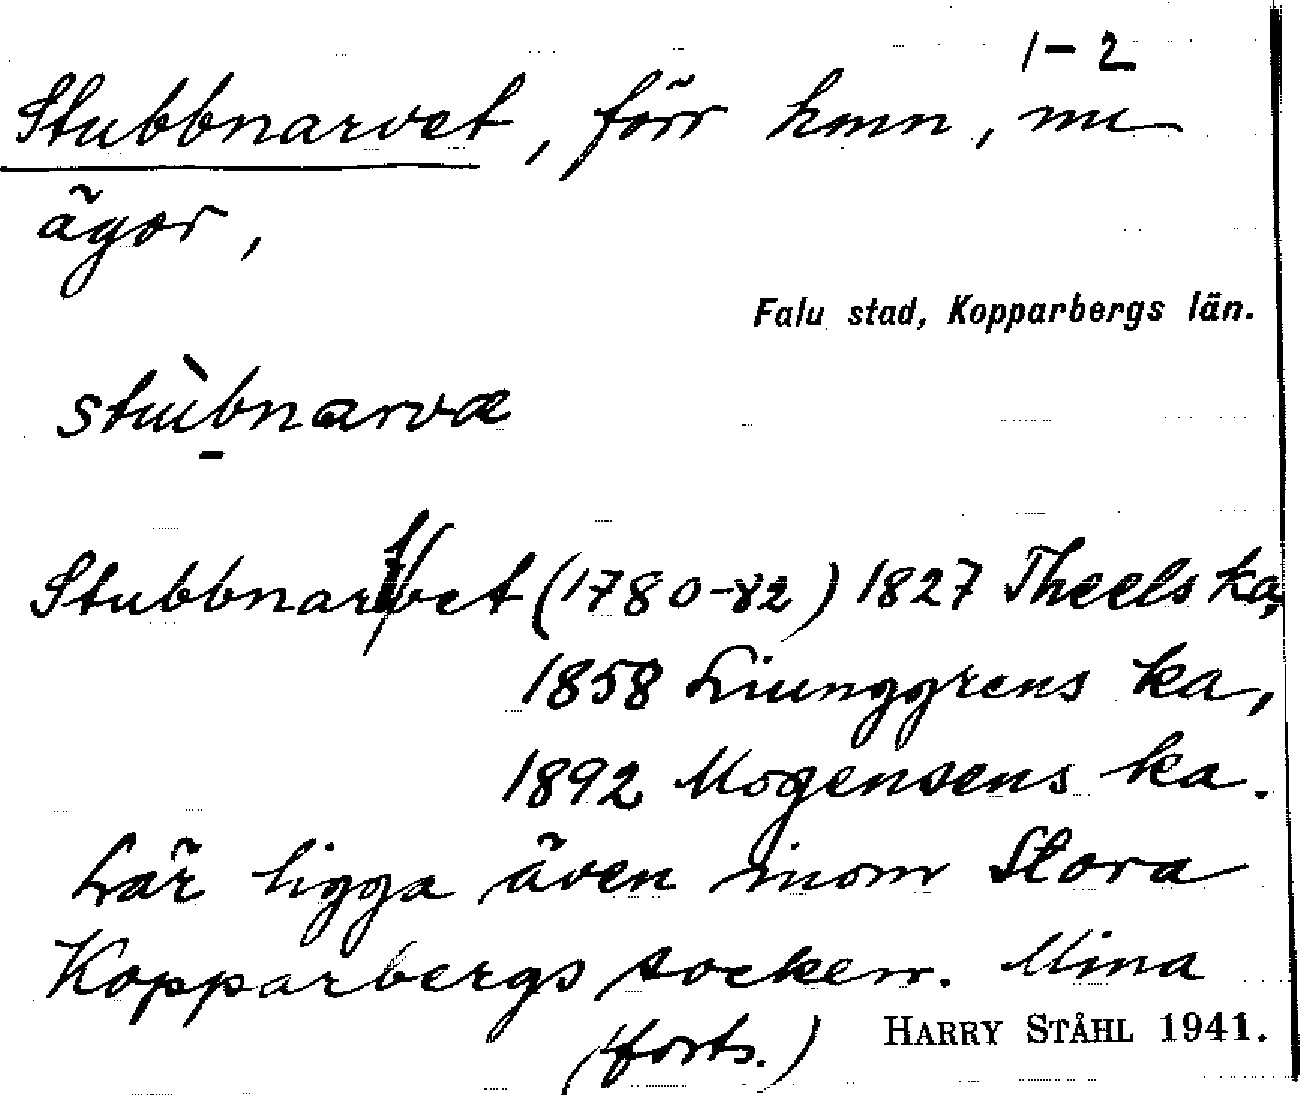 1-2
Stubbnarvet, förr hmn, nu
ägor,
Falu stad, Kopparbergs län.
stùbnarvæ
Stubbnarfvet (1780-82) 1827 Theels ka,
1858 Liunggrens ka,
1892 Mogensens ka.
Lär ligga även inom Stora
Kopparbergs socken. Mina
(forts.)
HARRY STÅHL 1941.